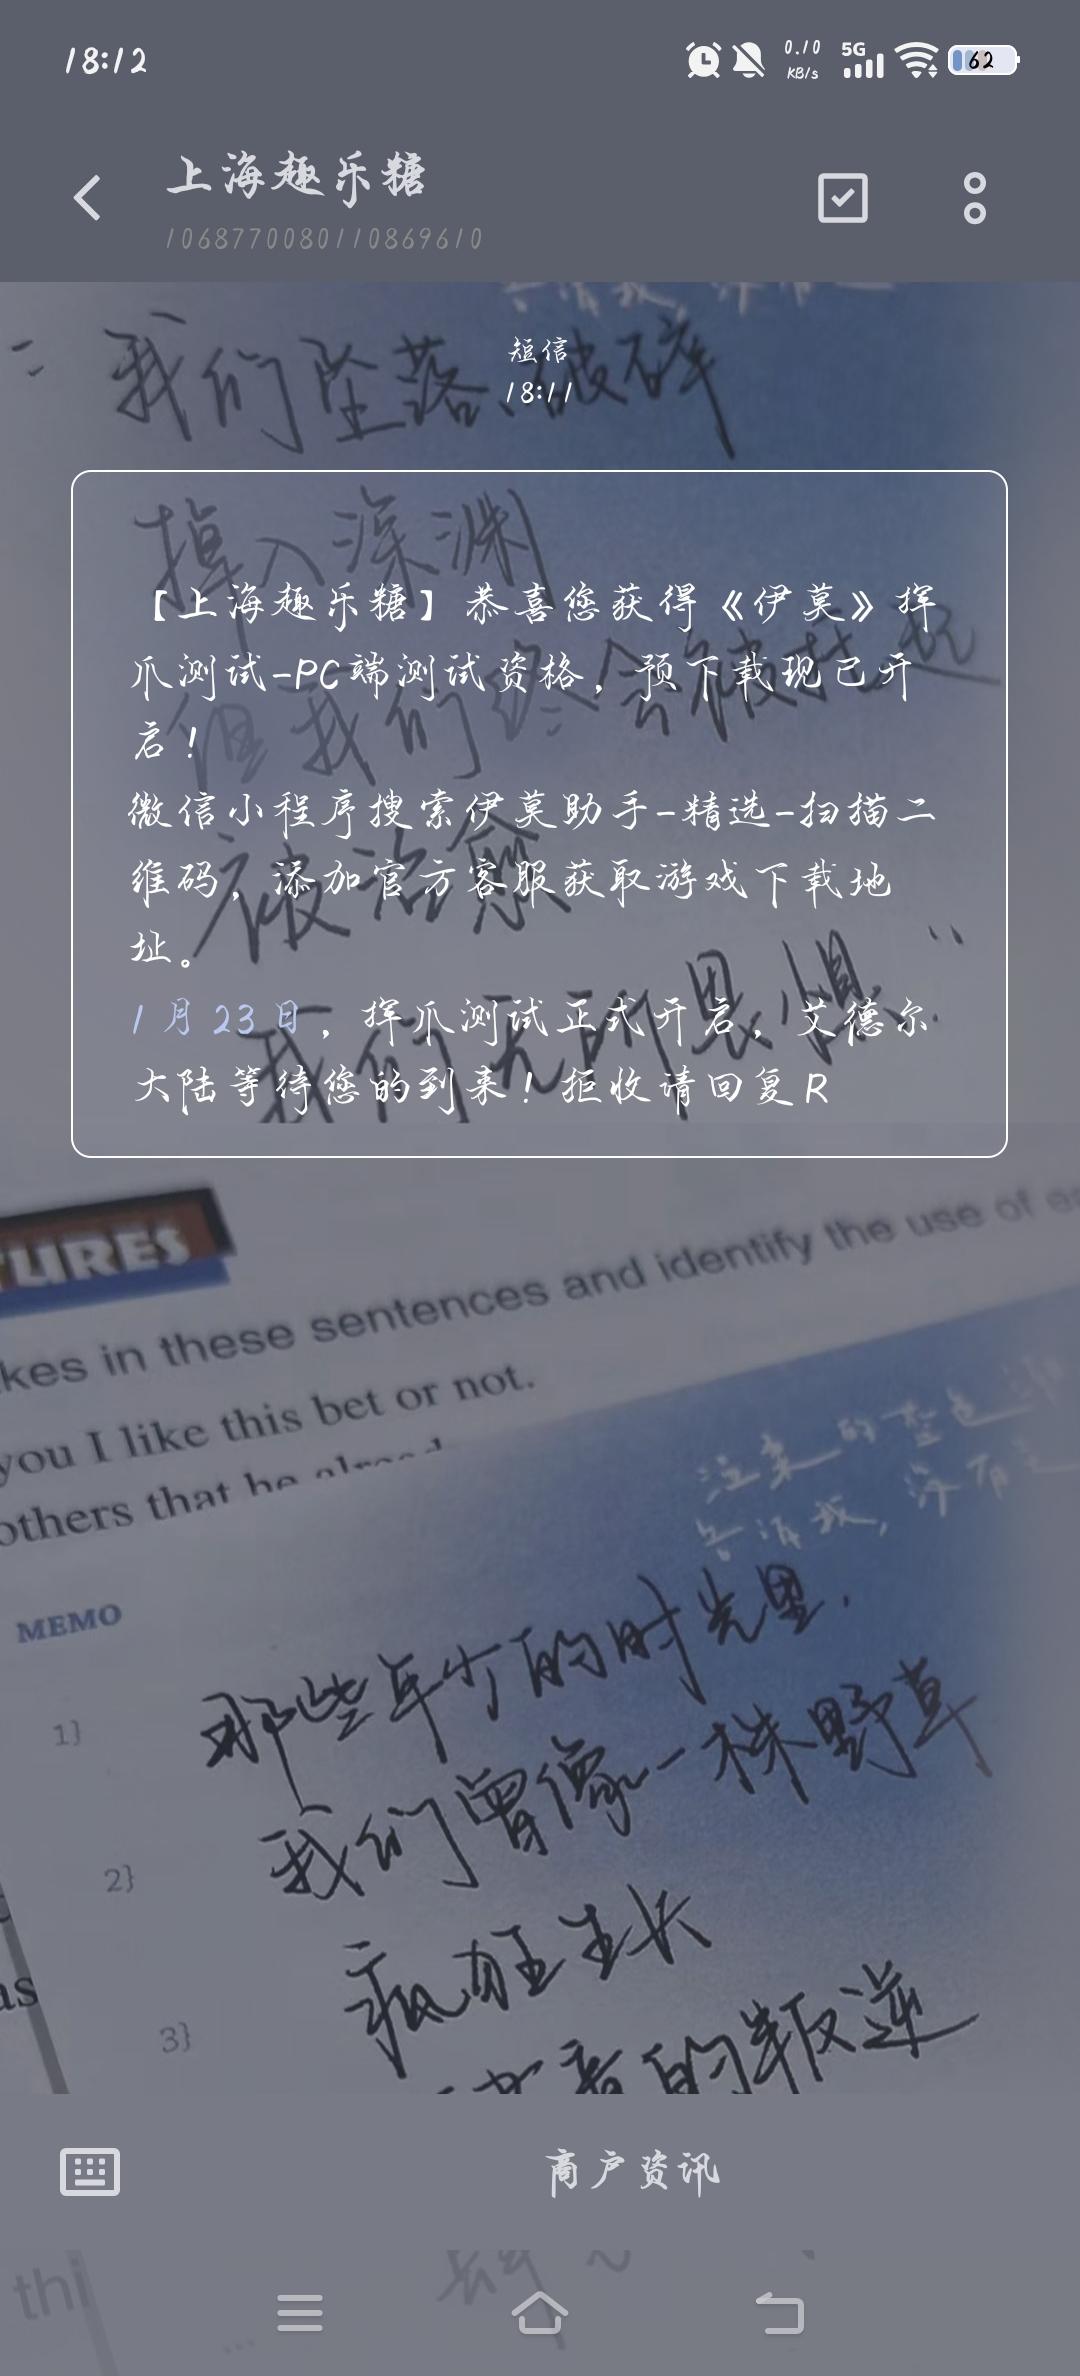 18:12
0.10
KB/s
5G
62
上海趣乐糖
106877008011086961​0
我们坠落、破碎
短信
18:11
掉入深渊
【上海趣乐糖】恭喜您获得《伊莫》挥
爪测试-PC端测试资格，预下载现已开
启！
但我们终会被扶起
微信小程序搜索伊莫助手-精选-扫描二
维码，添加官方客服获取游戏下载地
址。
被治愈
1月23日，挥爪测试正式开启，艾德尔
大陆等待您的到来！拒收请回复R
我们无所畏惧
TURES
kes in these sentences and identify the use of
you I like this bet or not.
others that he
MEMO
那些年少的时光里，
1}
我们曾像一株野草
2}
疯狂生长
3}
的叛逆
as
商户资讯
thi